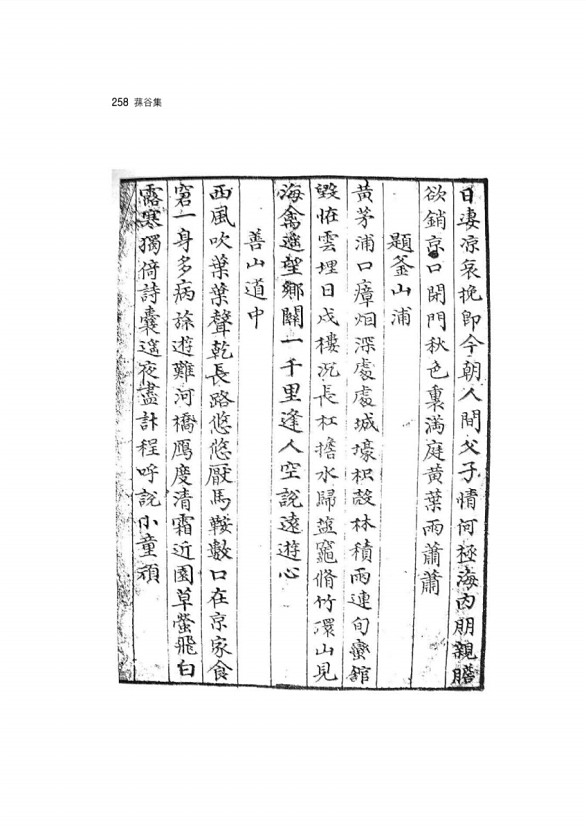 258 蓀谷集
日凄凉哀挽即今朝人間父子情何極海內朋親膽
欲銷京口閉門秋色裏滿庭黃葉雨蕭蕭
題釜山浦
黃茅浦口瘴烟深處處城壕枳殼林積雨連旬蠻舘
毀恠雲埋日戍樓沉長杠擔水歸鹽竈脩竹環山見
海禽遙望鄉關一千里逢人空說遠遊心
善山道中
西風吹葉葉聲乾長路悠悠厭馬鞍數口在京家食
窘一身多病旅遊難河橋鴈度清霜近園草螢飛白
露寒獨倚詩囊遙夜盡計程呼說小童頑